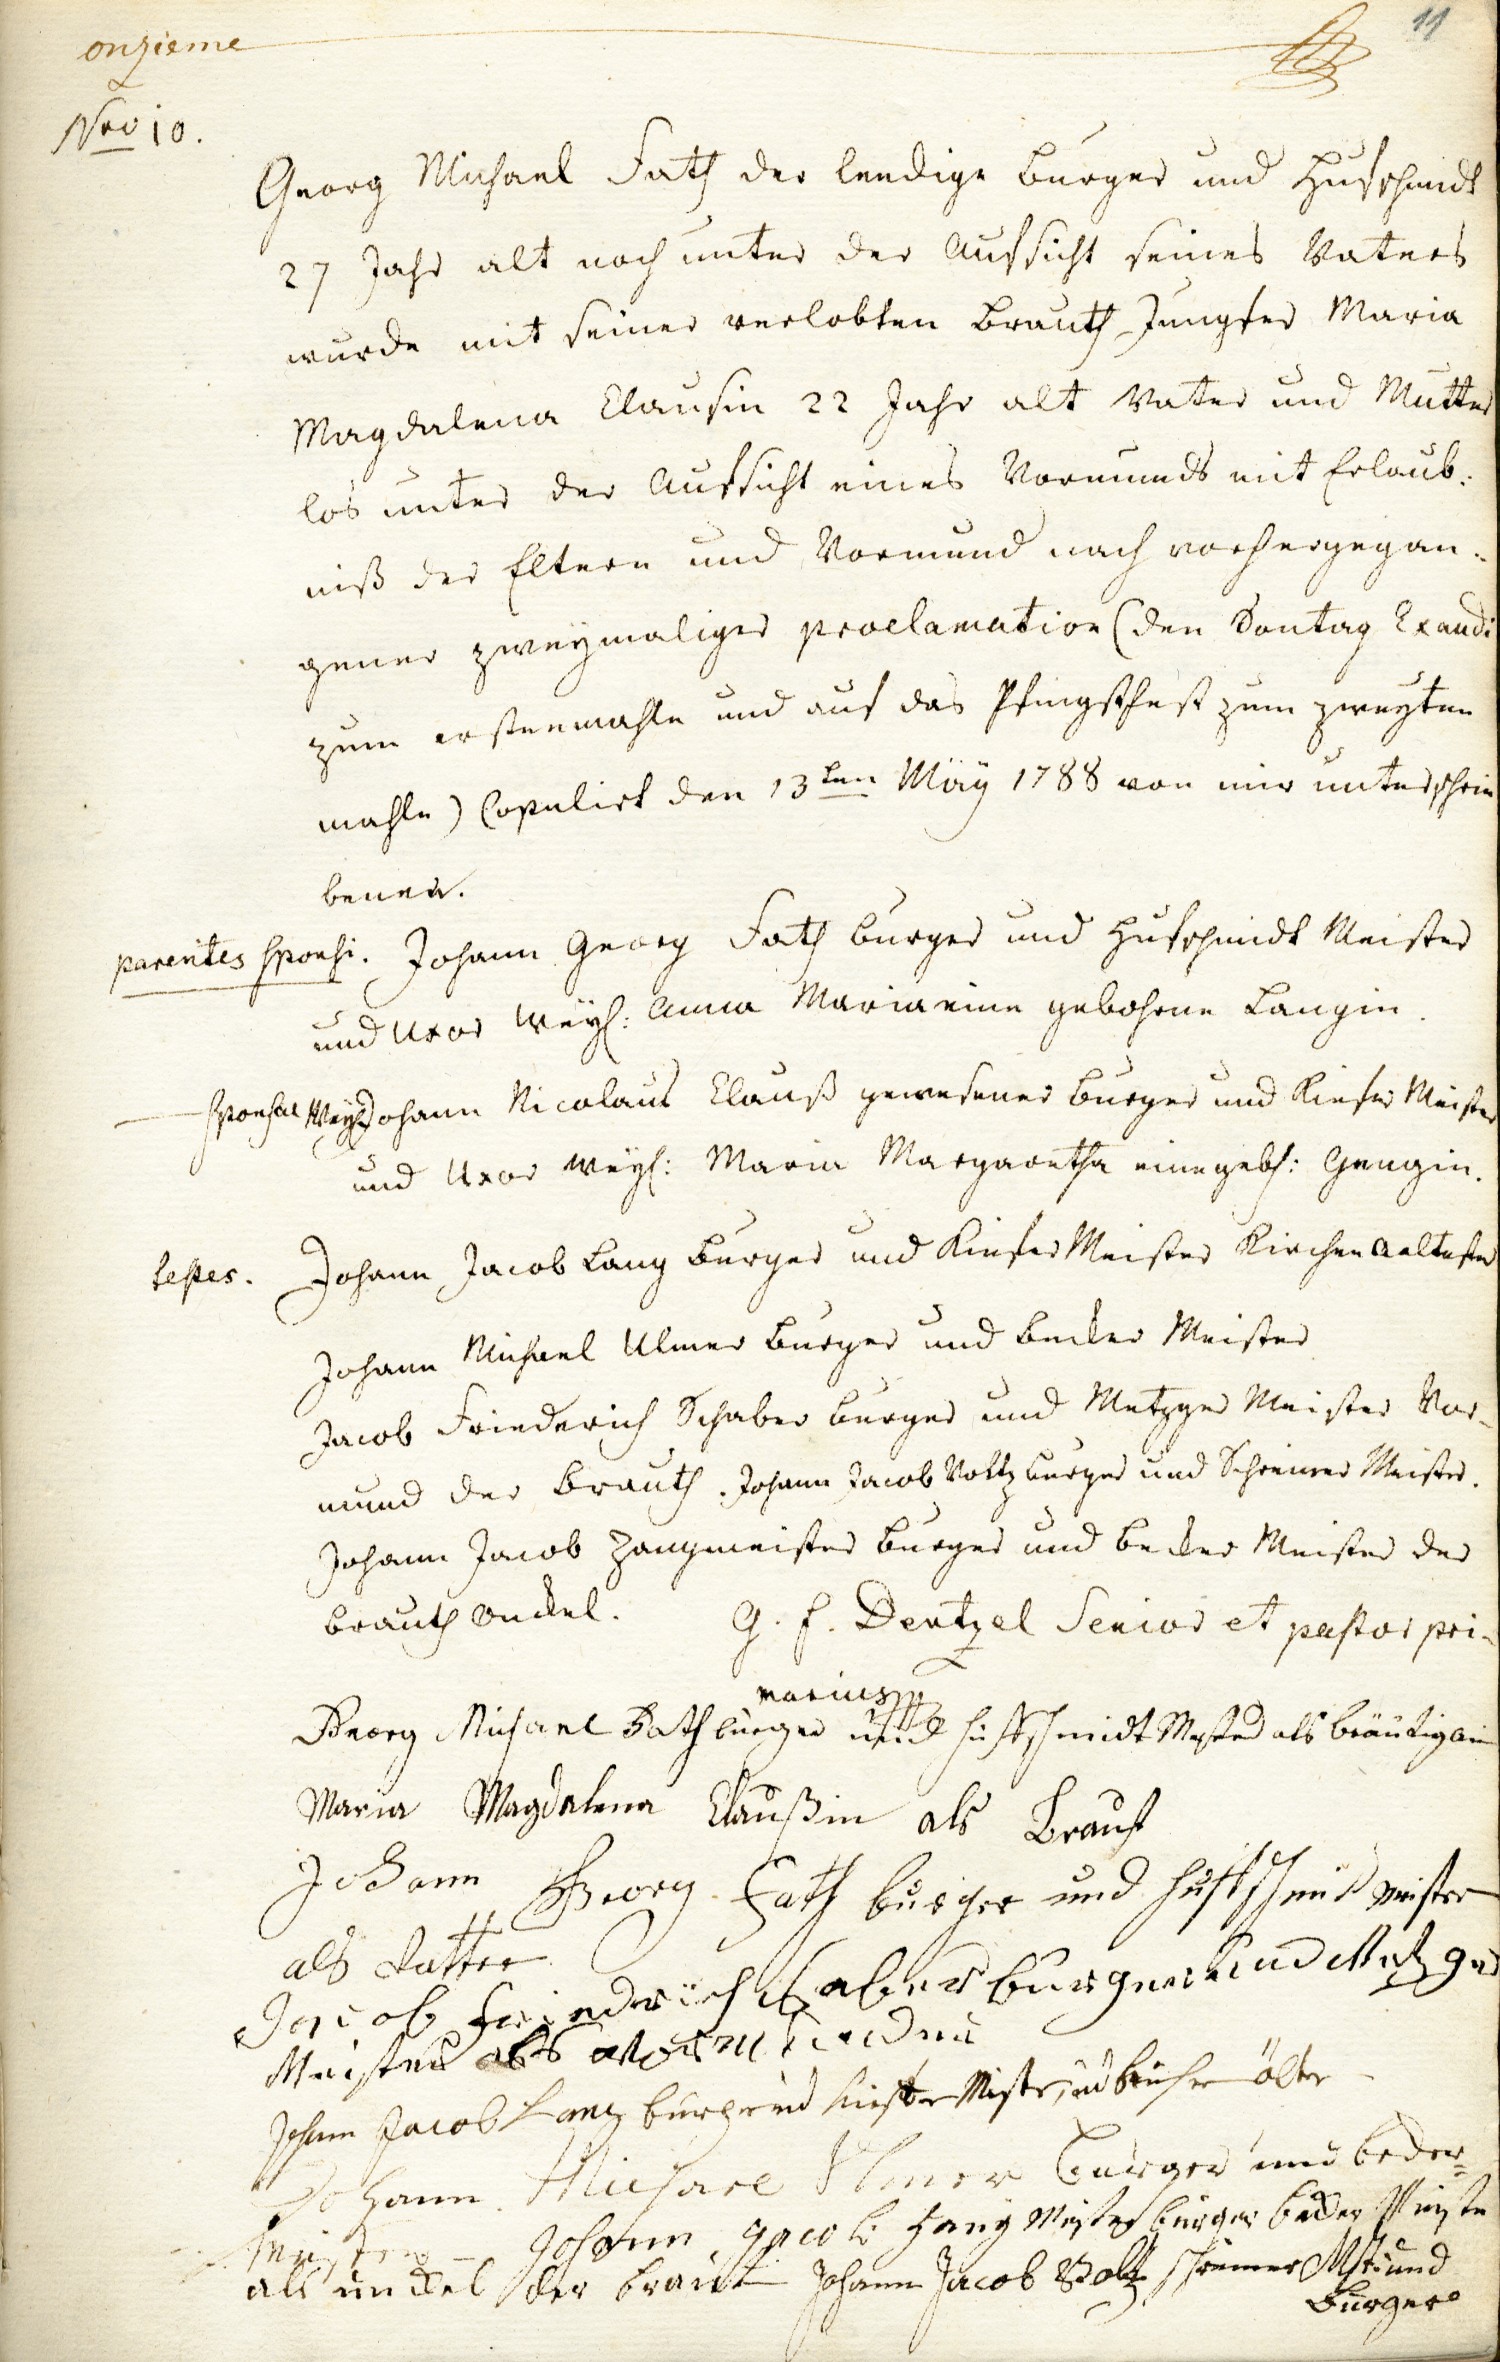 onzieme
11
Nro 10.
Georg Michael Fath der leedige burger und Hufschmidt
27 Jahr alt noch unter der Aufsicht seines Vaters
wurde mit seiner verlobten Brauth Jungfer Maria
Magdalena Clausin 22 Jahr alt Vater und Mutter
los unter der Aufsicht eines Vormunds mit Erlaub:
niß der Eltern und Vormund nach vorhergegan:
gener zweymaliger proclamation (den Sontag Exaudi
zum erstenmahle und auf das Pfingstfest zum zweyten
mahle) Copulirt den 13ten May 1788 von mir unterschrie
benen.
parentes sponsi. Johann Georg Fath burger und Hufschmidt Meister
und Uxor Weyl: Anna Maria eine gebohrne Langin.
— sponsae Weyl: Johann Nicolaus Clauß gewesener burger und Kiefer Meister
und Uxor Weyl: Maria Margaretha eine geb: Gengin.
testes. Johann Jacob Lang burger und Kiefer Meister Kirchen Aeltester
Johann Michael Ulmer burger und becker Meister
Jacob Friederich Schaber burger und Metzger Meister Vor-
mund der Brauth. Johann Jacob Voltz burger und Schreiner Meister.
Johann Jacob Zangmeister burger und becker Meister der
brauth Onckel. G. F. Dentzel Senior et pastor pri-
marius
Georg Michael Fath burger und hufschmidt Mester als bräutigam
Maria Magdalena Claußin als Braut
Johann Georg Fath burger und hufschmid meister
als Vatter
Jacob Friedrich Schaber burger und Metzger
Meister als vormünder
Johann Jacob Lang burger und Kiefer Mister und Kirchen ölter
Johann Michael Ulmer burger und becker
meister Johann Jacob Zangmeister burger becker Meister
als unckel der braut Johann Jacob Voltz schreiner Mstr und
burger